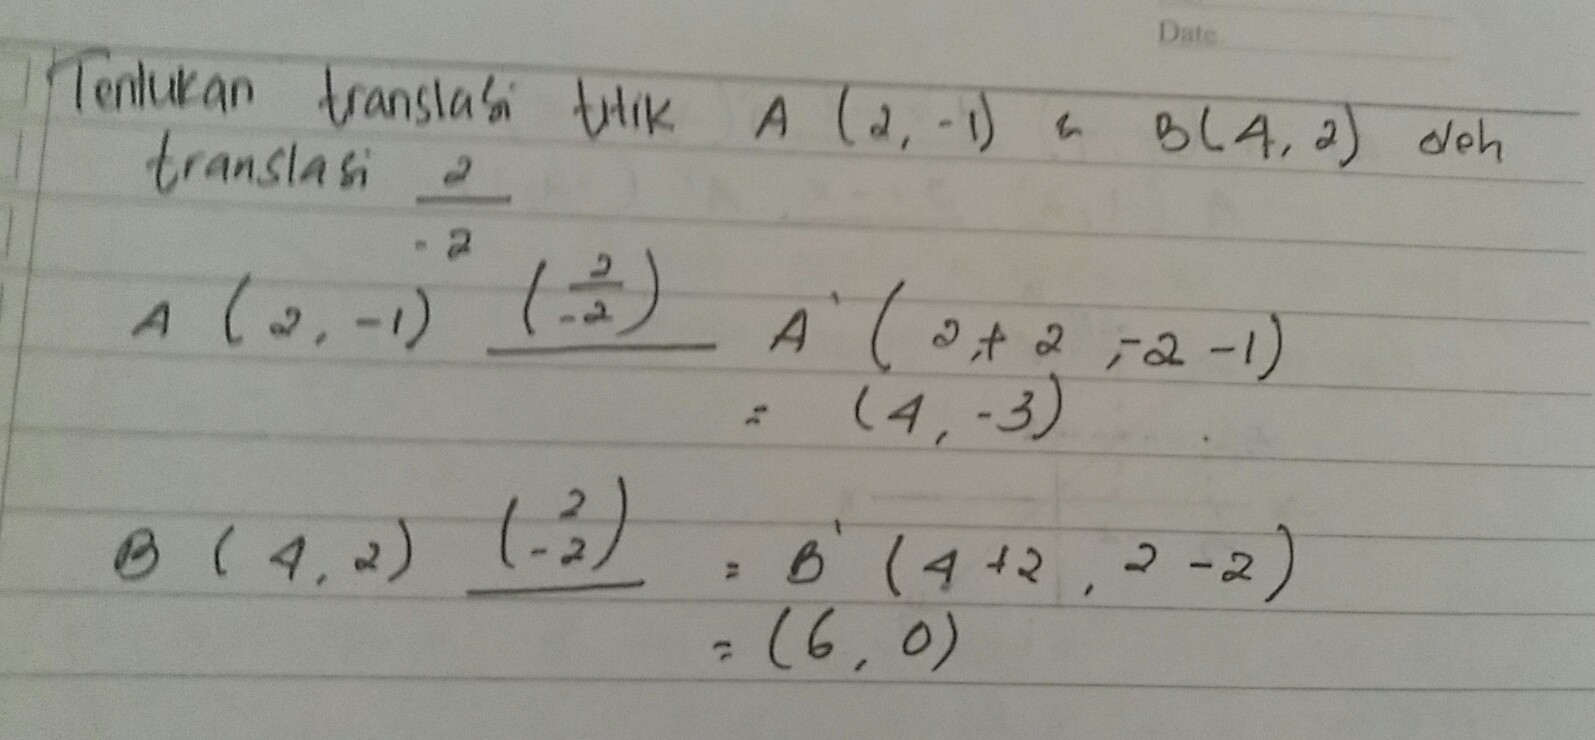 Date
Tentukan translasi titik A (2, -1) & B(4, 2) oleh
translasi 2
-2
A (2, -1) (2/-2) A' (2+2, -2-1)
= (4, -3)
B (4, 2) (2 -2) = B' (4+2, 2-2)
= (6, 0)